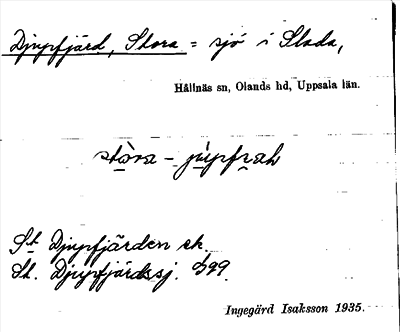 Djupfjärd, Stora = sjö i Slada,
Hållnäs sn, Olands hd, Uppsala län.
stòra - jùpfrah
St Djupfjärden ek.
St. Djupfjärdssj. G99
Ingegärd Isaksson 1935.